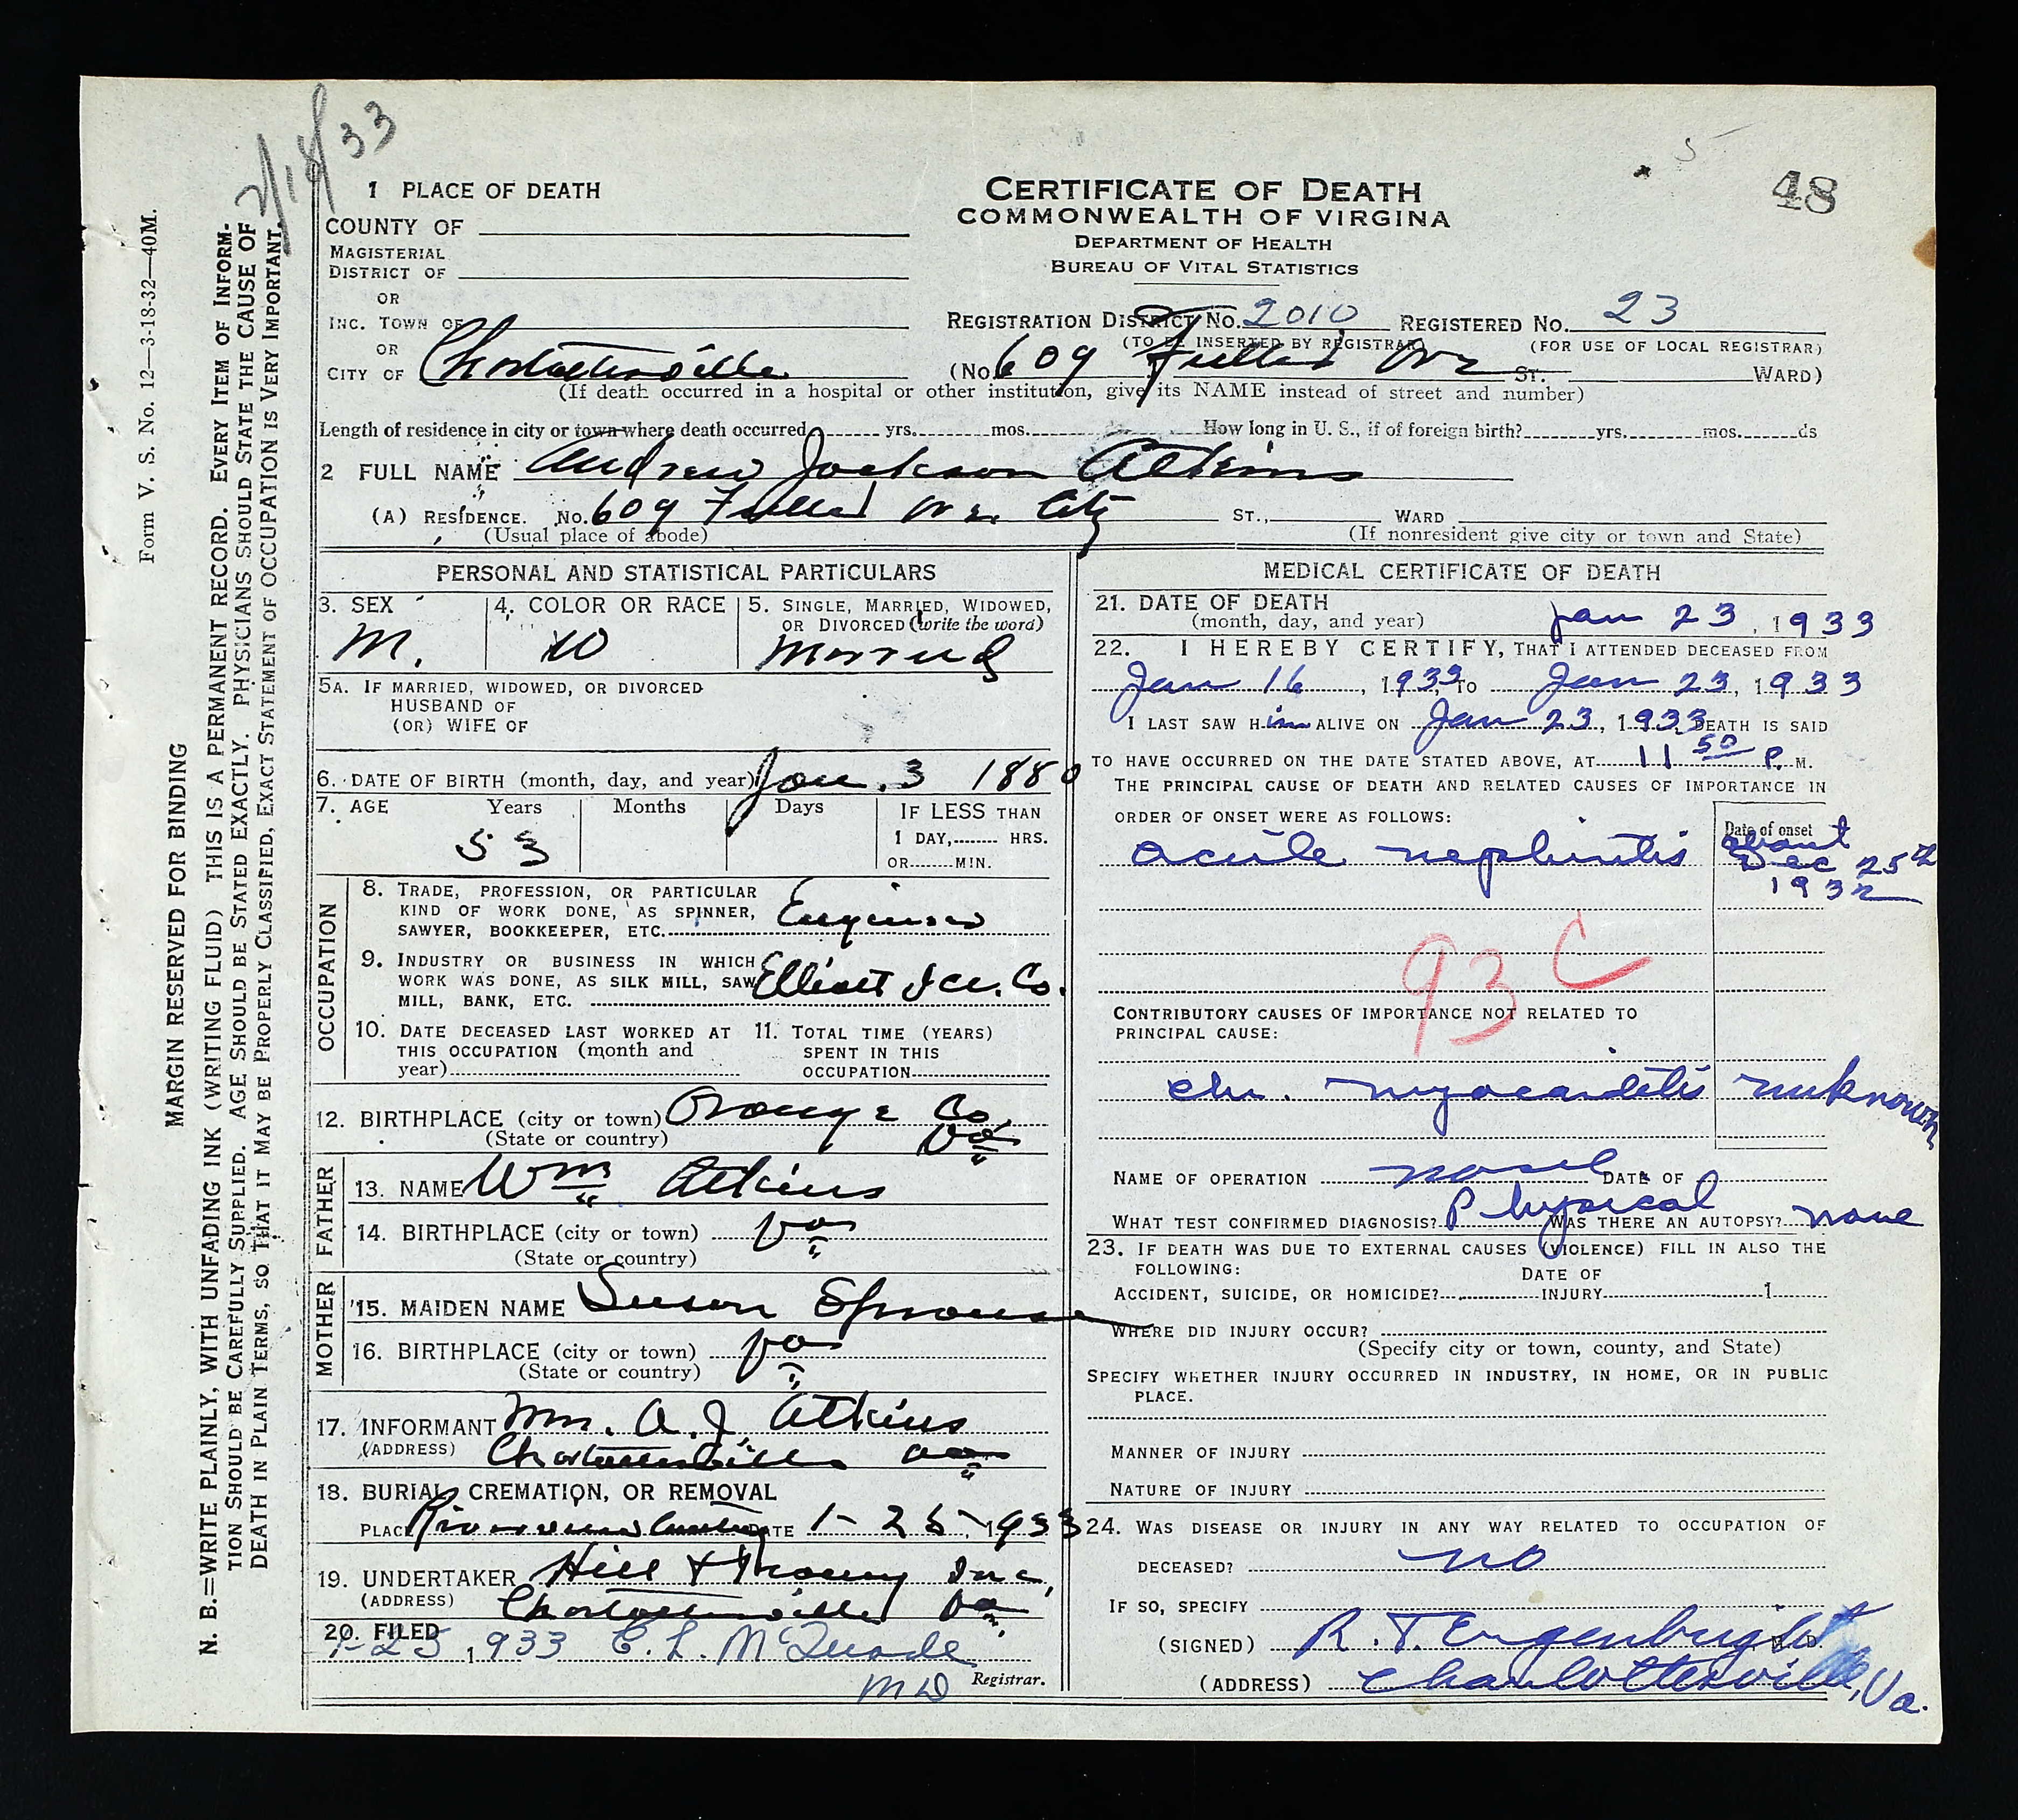 2/18/33
48
Form V. S. No. 12—3-18-32—40M.
MARGIN RESERVED FOR BINDING
N. B.=WRITE PLAINLY, WITH UNFADING INK (WRITING FLUID) THIS IS A PERMANENT RECORD. EVERY ITEM OF INFORM-
TION SHOULD BE CAREFULLY SUPPLIED. AGE SHOULD BE STATED EXACTLY. PHYSICIANS SHOULD STATE THE CAUSE OF
DEATH IN PLAIN TERMS, SO THAT IT MAY BE PROPERLY CLASSIFIED, EXACT STATEMENT OF OCCUPATION IS VERY IMPORTANT.
CERTIFICATE OF DEATH
COMMONWEALTH OF VIRGINA
DEPARTMENT OF HEALTH
BUREAU OF VITAL STATISTICS
1 PLACE OF DEATH
COUNTY OF
MAGISTERIAL
DISTRICT OF
OR
INC. TOWN OF
OR
CITY OF Charlottesville
REGISTRATION DISTRICT NO. 2010 REGISTERED NO. 23
(TO BE INSERTED BY REGISTRAR) (FOR USE OF LOCAL REGISTRAR)
(No. 609 Ave ST. WARD)
(If death occurred in a hospital or other institution, give its NAME instead of street and number)
Length of residence in city or town where death occurred yrs. mos. How long in U. S., if of foreign birth? yrs. mos. ds
2 FULL NAME Andrew Jackson Atkins
(A) RESIDENCE. No. 609 Ave. City ST., WARD
(Usual place of abode) (If nonresident give city or town and State)
PERSONAL AND STATISTICAL PARTICULARS
3. SEX M.
4. COLOR OR RACE W
5. SINGLE, MARRIED, WIDOWED,
OR DIVORCED (write the word)
Married
5A. IF MARRIED, WIDOWED, OR DIVORCED
HUSBAND OF
(OR) WIFE OF
6. DATE OF BIRTH (month, day, and year) Jan. 3 1880
7. AGE Years Months Days IF LESS THAN
53 1 DAY, HRS.
OR MIN.
OCCUPATION
8. TRADE, PROFESSION, OR PARTICULAR
KIND OF WORK DONE, AS SPINNER,
SAWYER, BOOKKEEPER, ETC. Engineer
9. INDUSTRY OR BUSINESS IN WHICH
WORK WAS DONE, AS SILK MILL, SAW
MILL, BANK, ETC. Elliott Ice. Co.
10. DATE DECEASED LAST WORKED AT
THIS OCCUPATION (month and
year)
11. TOTAL TIME (YEARS)
SPENT IN THIS
OCCUPATION
12. BIRTHPLACE (city or town) Orange Co.
(State or country) Va
FATHER
13. NAME Wm Atkins
14. BIRTHPLACE (city or town) Va
(State or country)
MOTHER
15. MAIDEN NAME Susan Sprouse
16. BIRTHPLACE (city or town) Va
(State or country)
17. INFORMANT Mrs. A. J. Atkins
(ADDRESS) Charlottesville Va
18. BURIAL, CREMATION, OR REMOVAL
PLACE Riverview Cemetery DATE 1- 25, 1933
19. UNDERTAKER Hill & Inc,
(ADDRESS) Charlottesville Va
20. FILED
1-25, 1933 E. L. McQuade
MD Registrar.
MEDICAL CERTIFICATE OF DEATH
21. DATE OF DEATH
(month, day, and year) Jan 23, 1933
22. I HEREBY CERTIFY, THAT I ATTENDED DECEASED FROM
Jan 16, 1933, TO Jan 23, 1933
I LAST SAW Him ALIVE ON Jan 23, 1933, DEATH IS SAID
TO HAVE OCCURRED ON THE DATE STATED ABOVE, AT 11 50 P. M.
THE PRINCIPAL CAUSE OF DEATH AND RELATED CAUSES OF IMPORTANCE IN
ORDER OF ONSET WERE AS FOLLOWS:
Date of onset
acute nephritis about
Dec 25th
1932
93 C
CONTRIBUTORY CAUSES OF IMPORTANCE NOT RELATED TO
PRINCIPAL CAUSE:
chr. myocarditis unknown
NAME OF OPERATION none DATE OF
WHAT TEST CONFIRMED DIAGNOSIS? Physical WAS THERE AN AUTOPSY? none
23. IF DEATH WAS DUE TO EXTERNAL CAUSES (VIOLENCE) FILL IN ALSO THE
FOLLOWING:
DATE OF
ACCIDENT, SUICIDE, OR HOMICIDE? INJURY 1
WHERE DID INJURY OCCUR?
(Specify city or town, county, and State)
SPECIFY WHETHER INJURY OCCURRED IN INDUSTRY, IN HOME, OR IN PUBLIC
PLACE.
MANNER OF INJURY
NATURE OF INJURY
24. WAS DISEASE OR INJURY IN ANY WAY RELATED TO OCCUPATION OF
DECEASED? no
IF SO, SPECIFY
(SIGNED) R. T. Ergenbright M. D.
(ADDRESS) Charlottesville, Va.